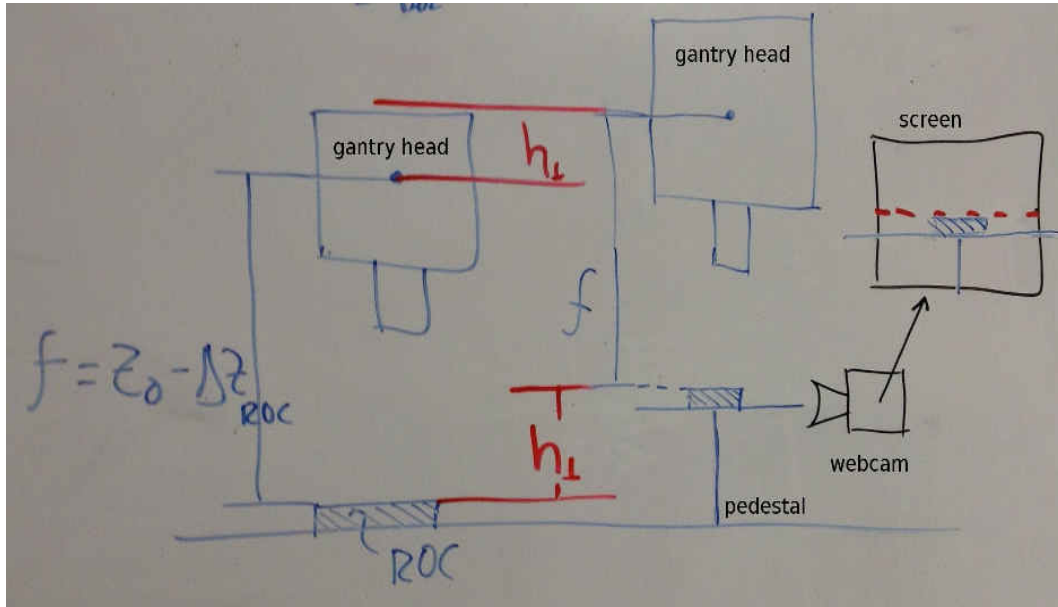 gantry head
gantry head
screen
h⊥
f
f = Z₀ - ΔZ_ROC
h⊥
webcam
pedestal
ROC